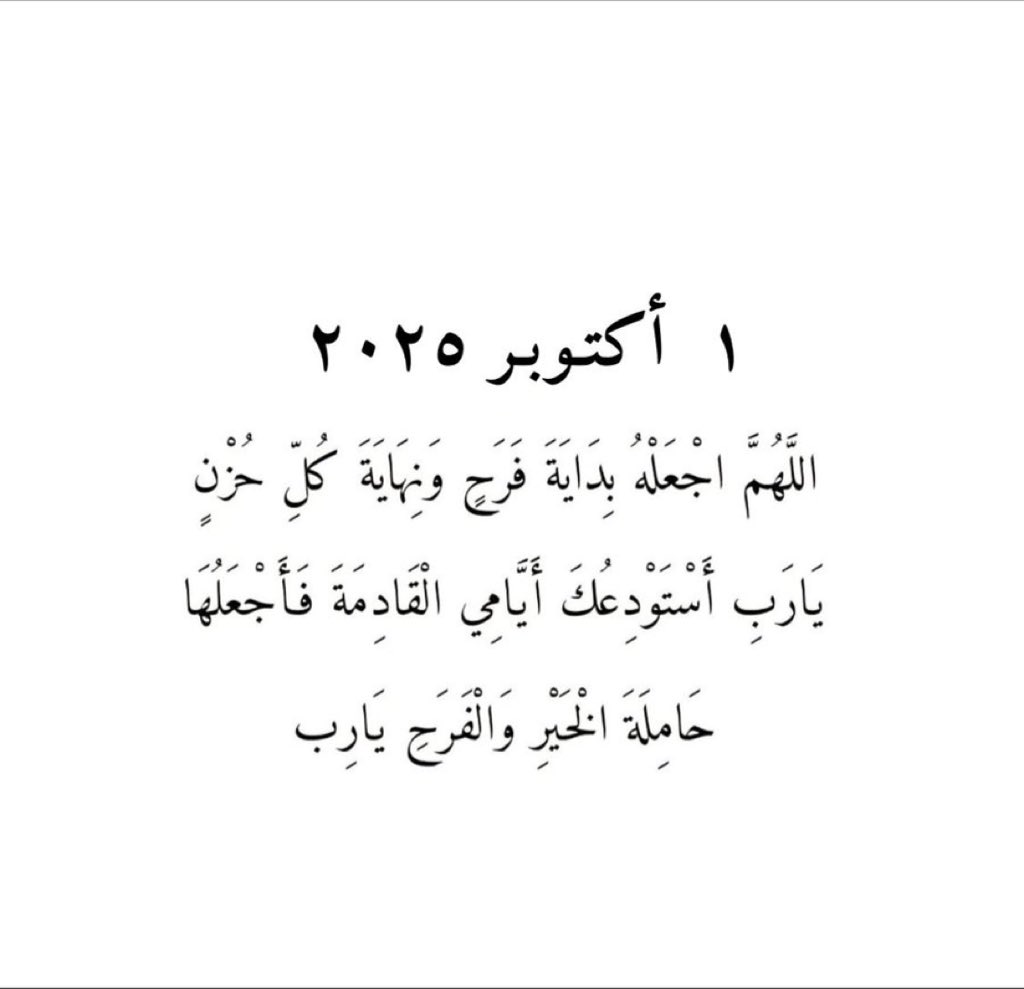 ١ أكتوبر ٢٠٢٥
اللَّهُمَّ اجْعَلْهُ بِدَايَةَ فَرَحٍ وَنِهَايَةَ كُلِّ حُزْنٍ
يَارَبِ أَسْتَوْدِعُكَ أَيَّامِي الْقَادِمَةَ فَأَجْعَلُهَا
حَامِلَةَ الْخَيْرِ وَالْفَرَحِ يَارِب